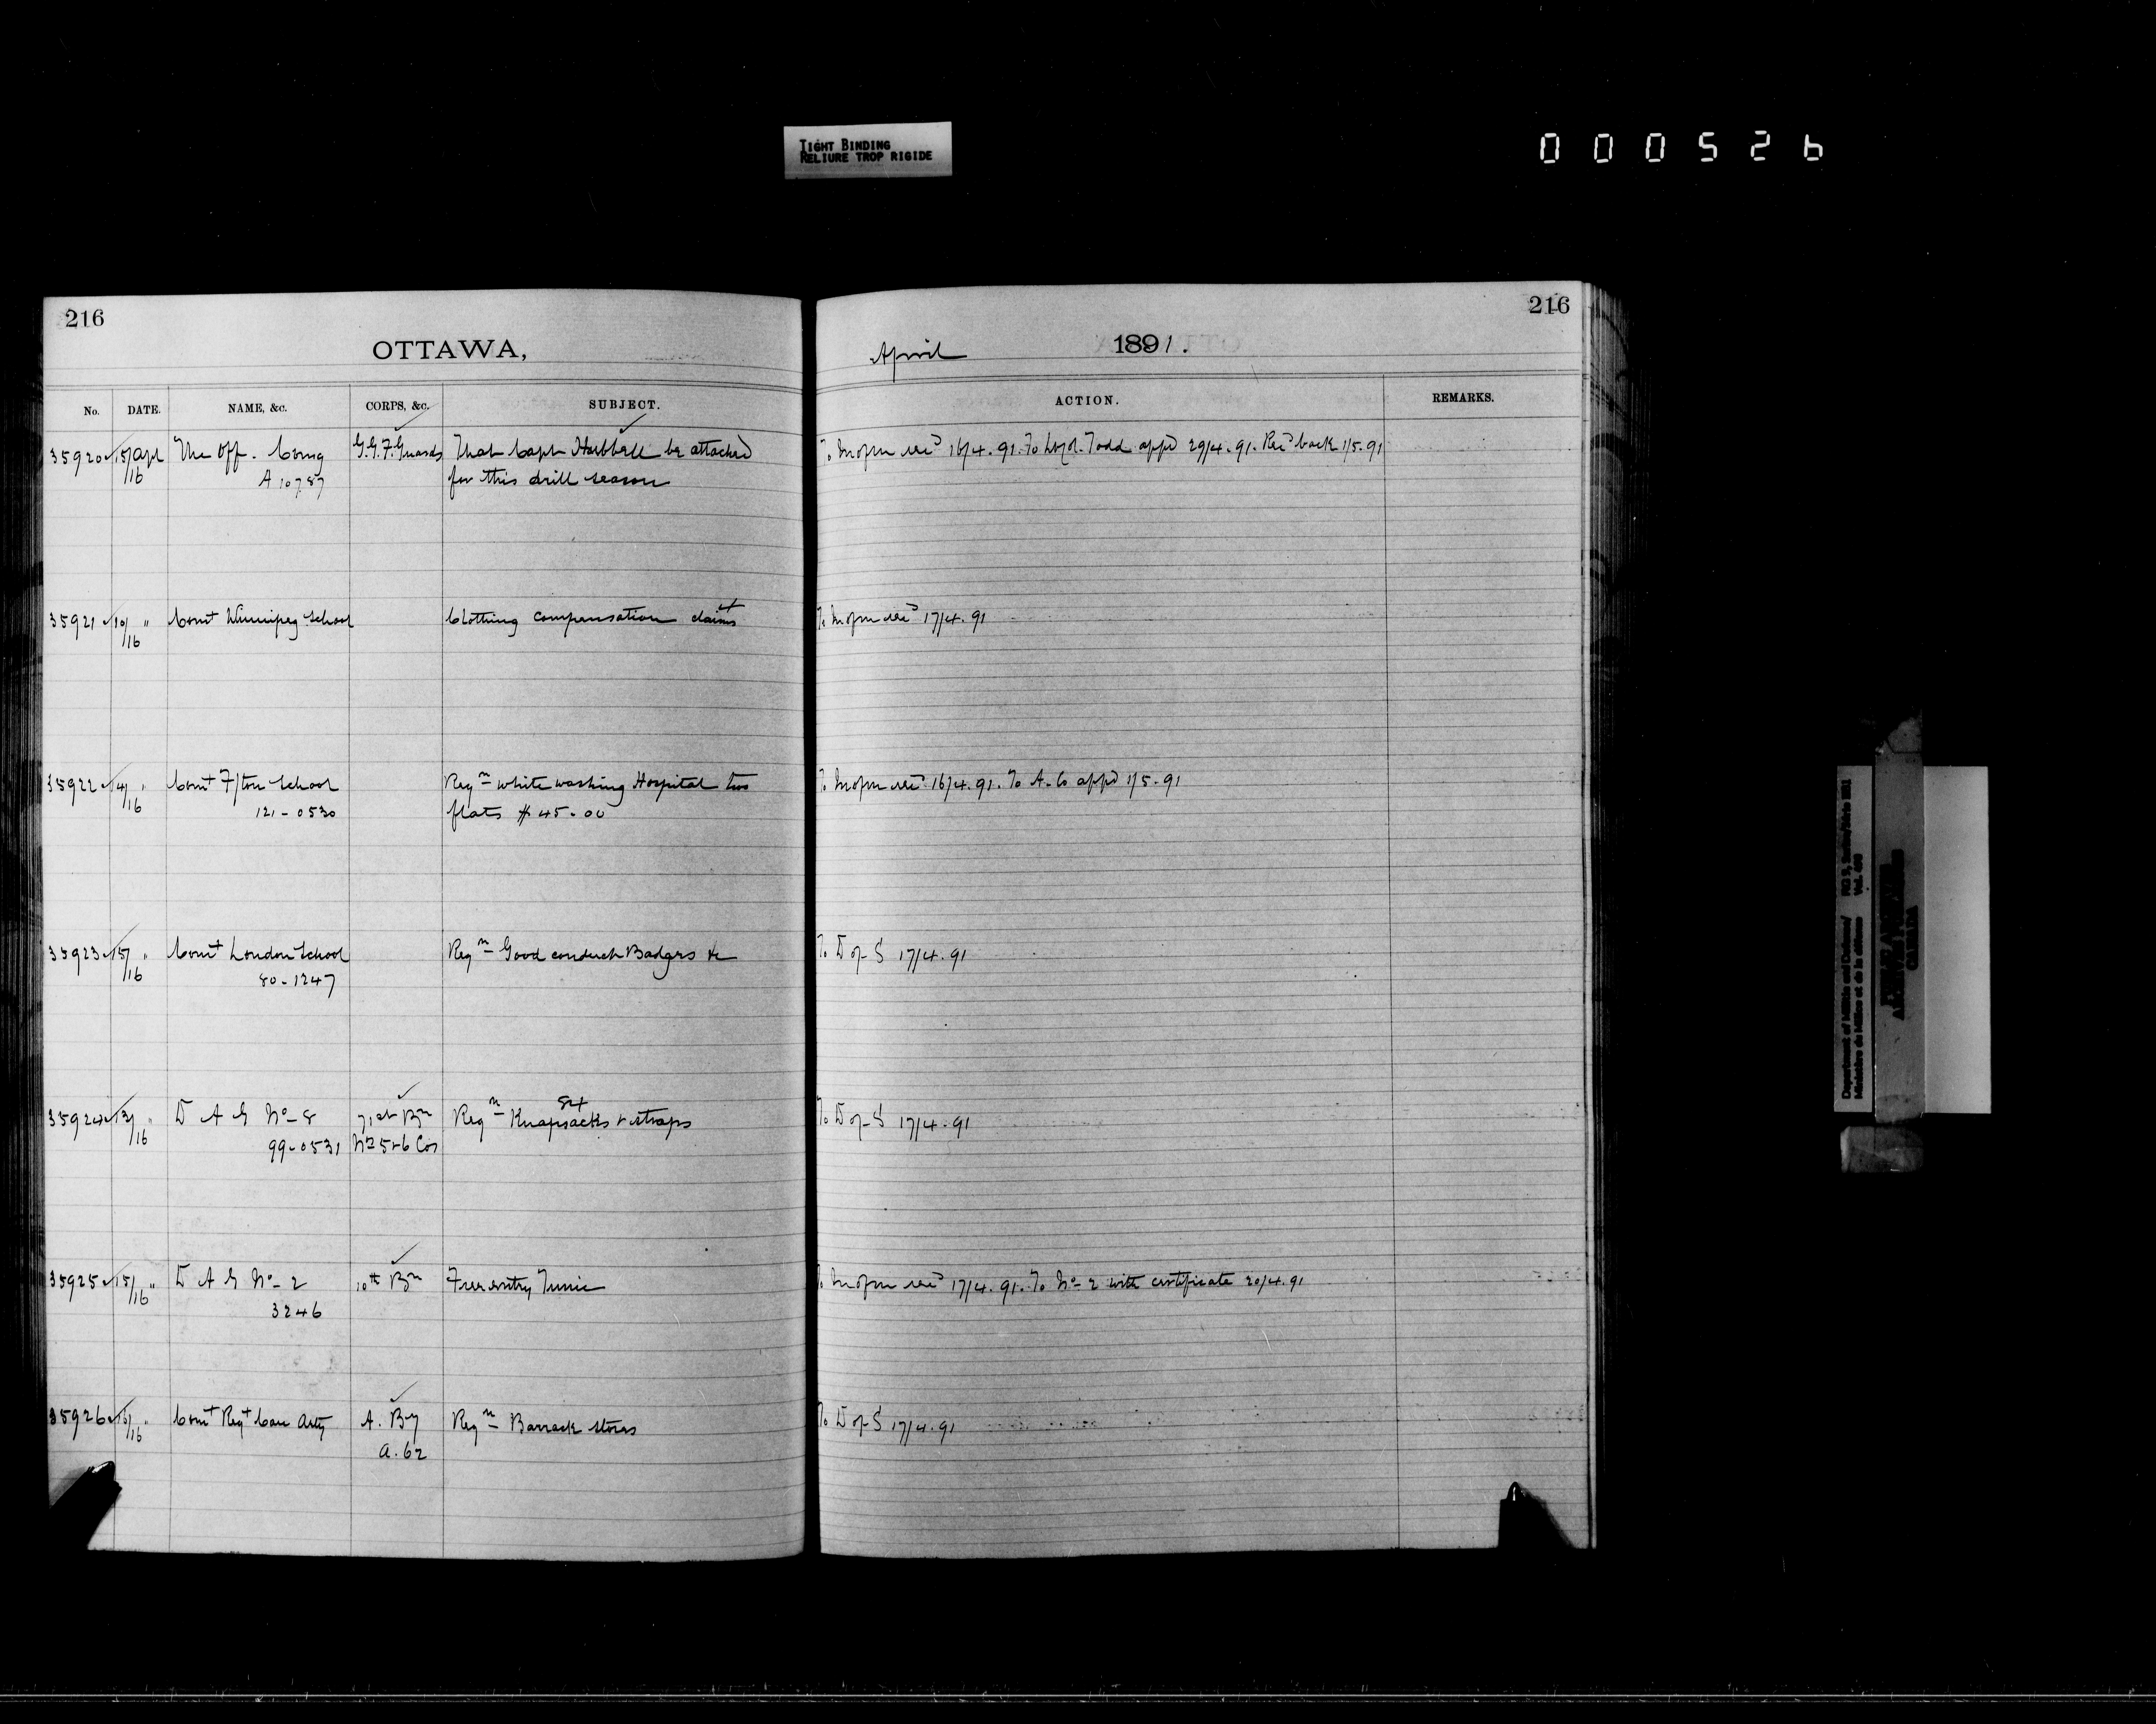 TIGHT BINDING
RELIURE TROP RIGIDE
000526
216
OTTAWA,
No. DATE. NAME, &c. CORPS, &c. SUBJECT.
35920 15/Apl The Off. Comg G.G.F.Guards That Capt Hubbell be attached
/16 A 10787 for this drill season
35921 10/ " Comt Winnipeg School Clothing compensation claims
/16
35922 14/ " Comt F/ton School Reqn white washing Hospital two
/16 121-0530 flats $45.00
35923 15/ " Comt London School Reqn Good conduct Badges &c
/16 80-1247
35924 13/ " D A G No 8 71st Bn Reqn Knapsacks & straps
/16 99-0531 No 5 & 6 Cos
35925 15/ " D A G No 2 10th Bn Free entry Tunic
/16 3246
35926 15/ " Comt Regt Can Arty A. By Reqn Barrack stores
/16 A.62
216
April 1891.
ACTION. REMARKS.
To M of m red 16/4.91. To Lt Col. Todd appd 29/4.91. Recd back 1/5.91
To M of m red 17/4.91
To M of m red 16/4.91. To A. Co appd 1/5.91
To D of S 17/4.91
To D of S 17/4.91
To M of m red 17/4.91. To No 2 with certificate 20/4.91
To D of S 17/4.91
Department of Militia and Defence/
Ministère du Milice et de la défense